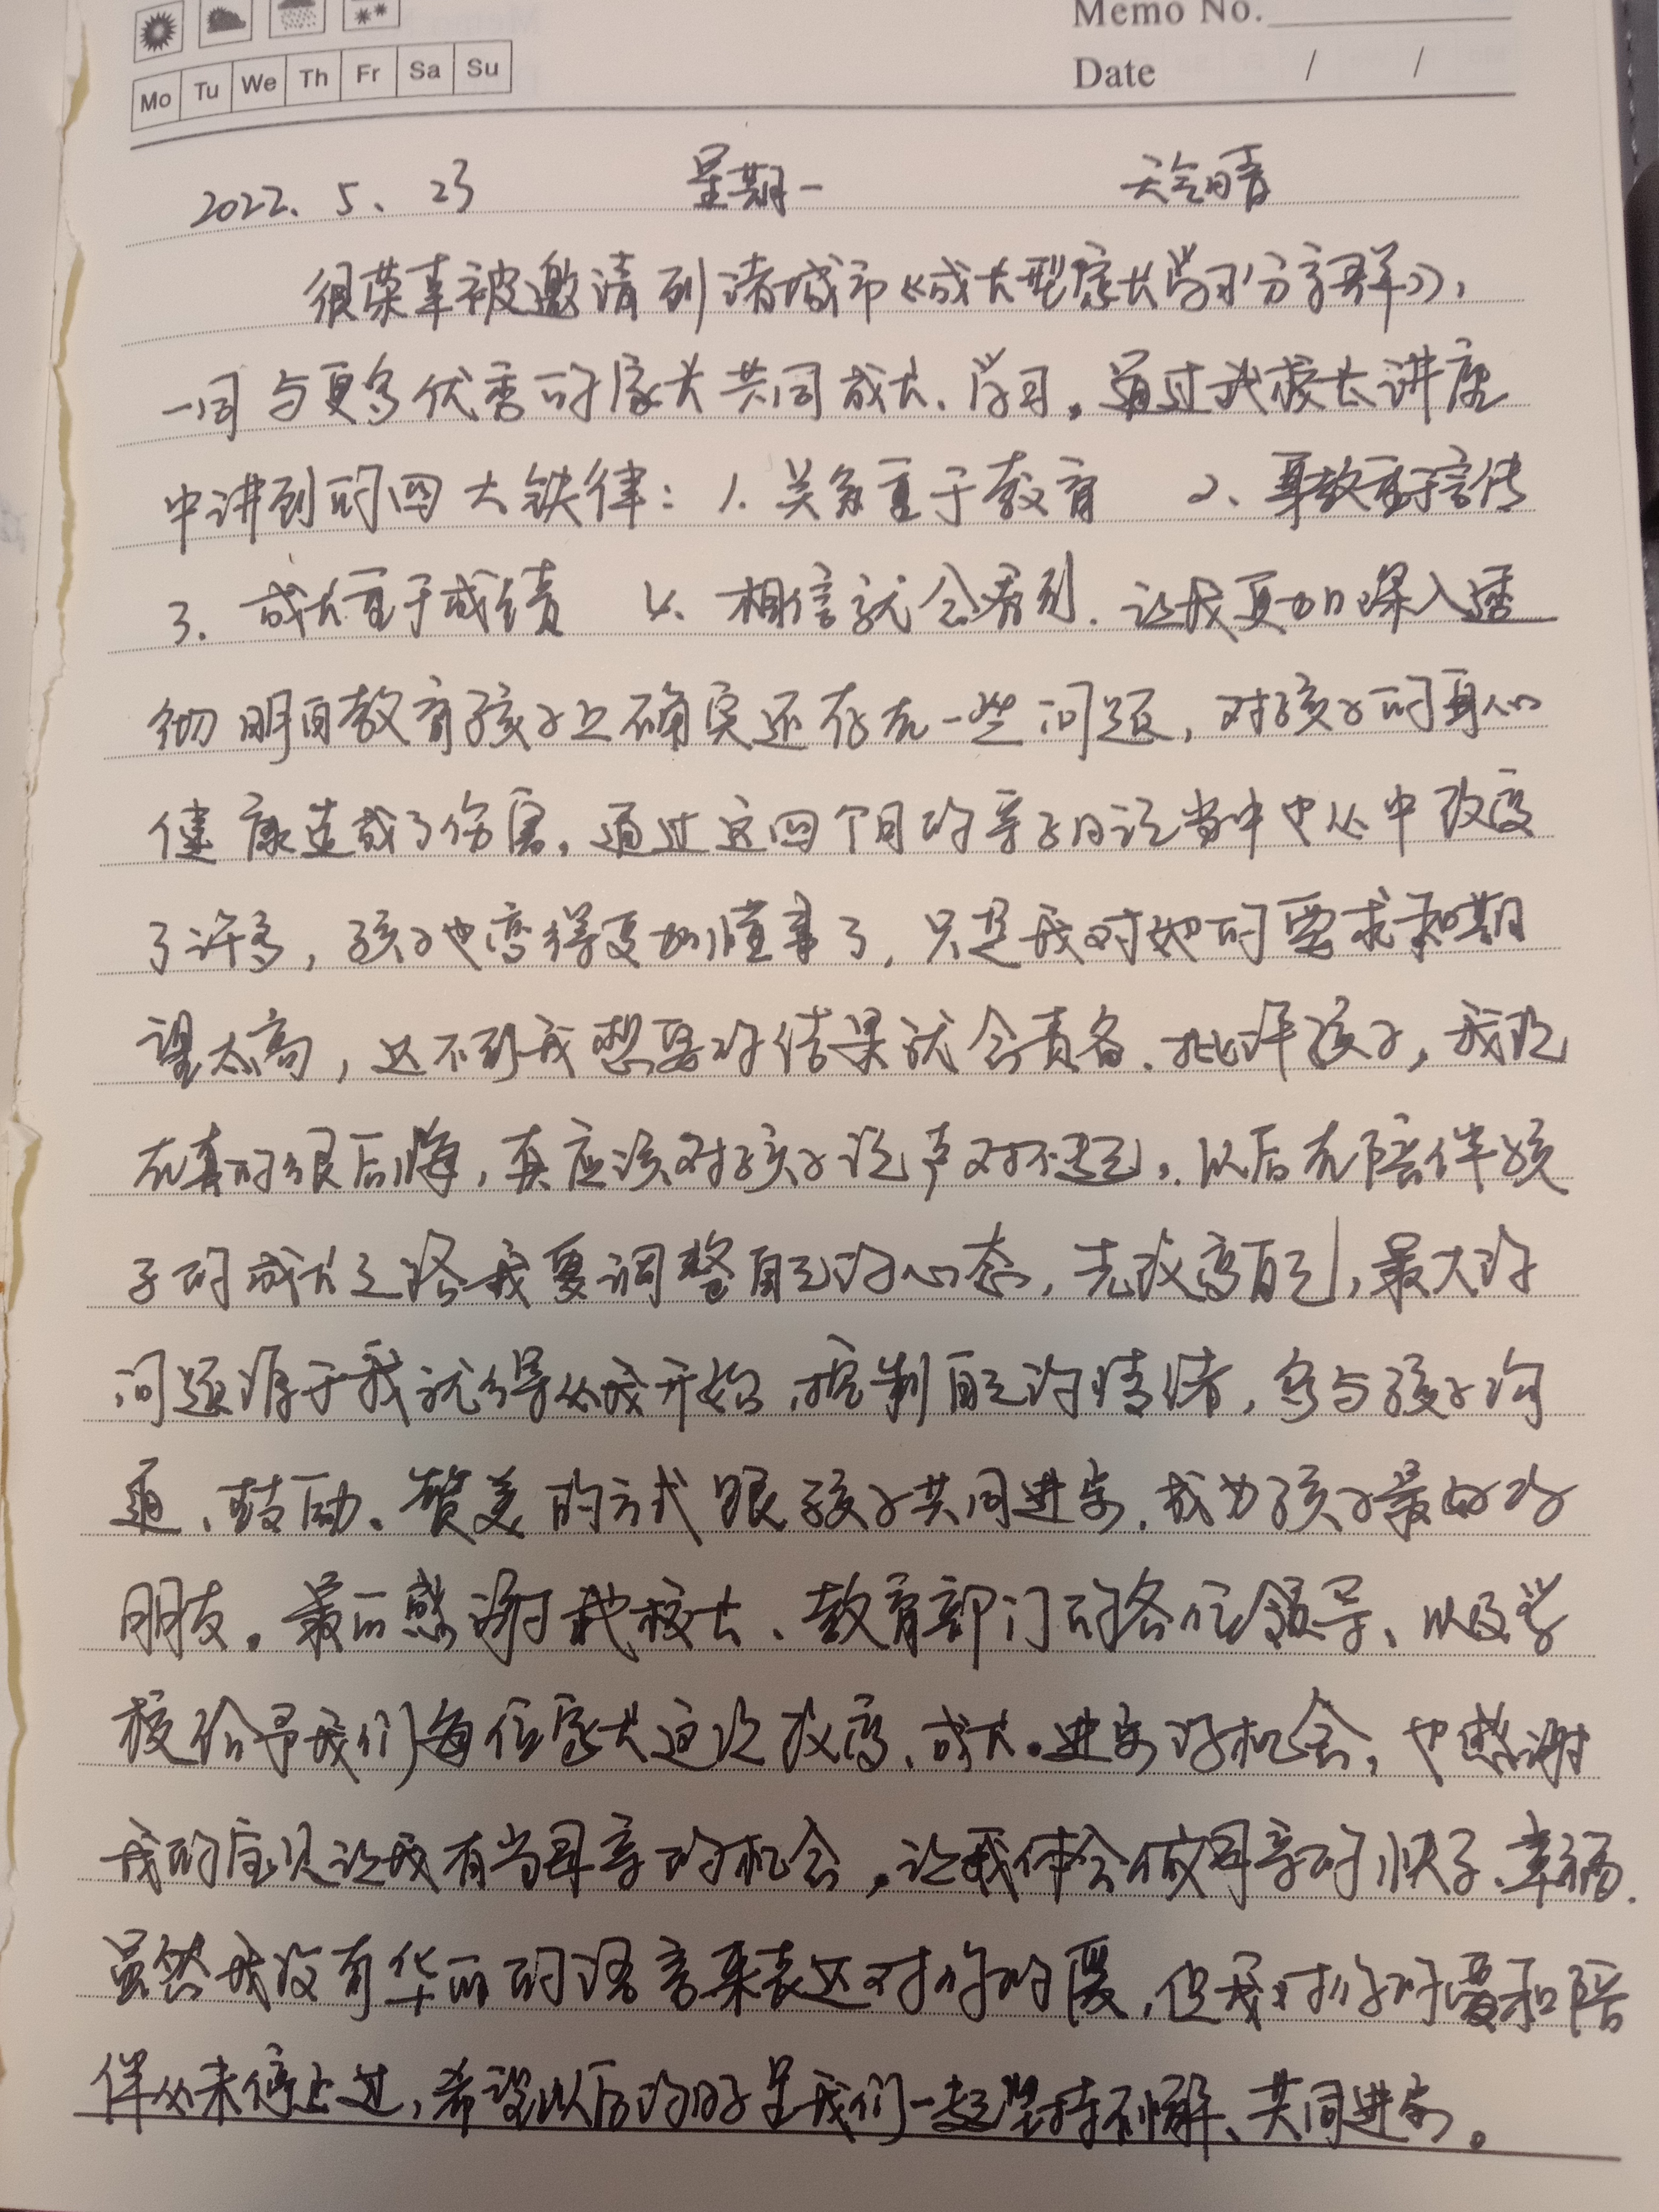 Memo No.
Mo Tu We Th Fr Sa Su
Date / /
2022.5、23 星期一 天气晴
很荣幸被邀请到诸城市《成长型家长学习分享群》,
一同与更多优秀的家长共同成长、学习。通过武校长讲座
中讲到的四大铁律:1.关系重于教育 2、身教重于言传
3.成长重于成绩 4.相信就会看到.让我更加深入透
彻明白教育孩子上确实还存在一些问题,对孩子的身心
健康造成了伤害。通过这四个月的亲子日记当中也从中改变
了许多,孩子也变得更加懂事了,只是我对她的要求和期
望太高,达不到我想要的结果就会责备、批评孩子,我现
在真的很后悔,真应该对孩子说声对不起。以后在陪伴孩
子的成长之路我要调整自己的心态,先改变自己,最大的
问题源于我就得从我开始,控制自己的情绪,多与孩子沟
通、鼓励、赞美的方式跟孩子共同进步,成为孩子最好的
朋友。最后感谢武校长、教育部门的各位领导、以及学
校给予我们每位家长这次改变、成长。进步的机会,也感谢
我的宝贝让我有当母亲的机会,让我体会做母亲的快了、幸福.
虽然我没有华丽的语言来表达对你的爱,但我对你的爱和陪
伴从未停止过,希望以后的日子是我们一起坚持不懈、共同进步。